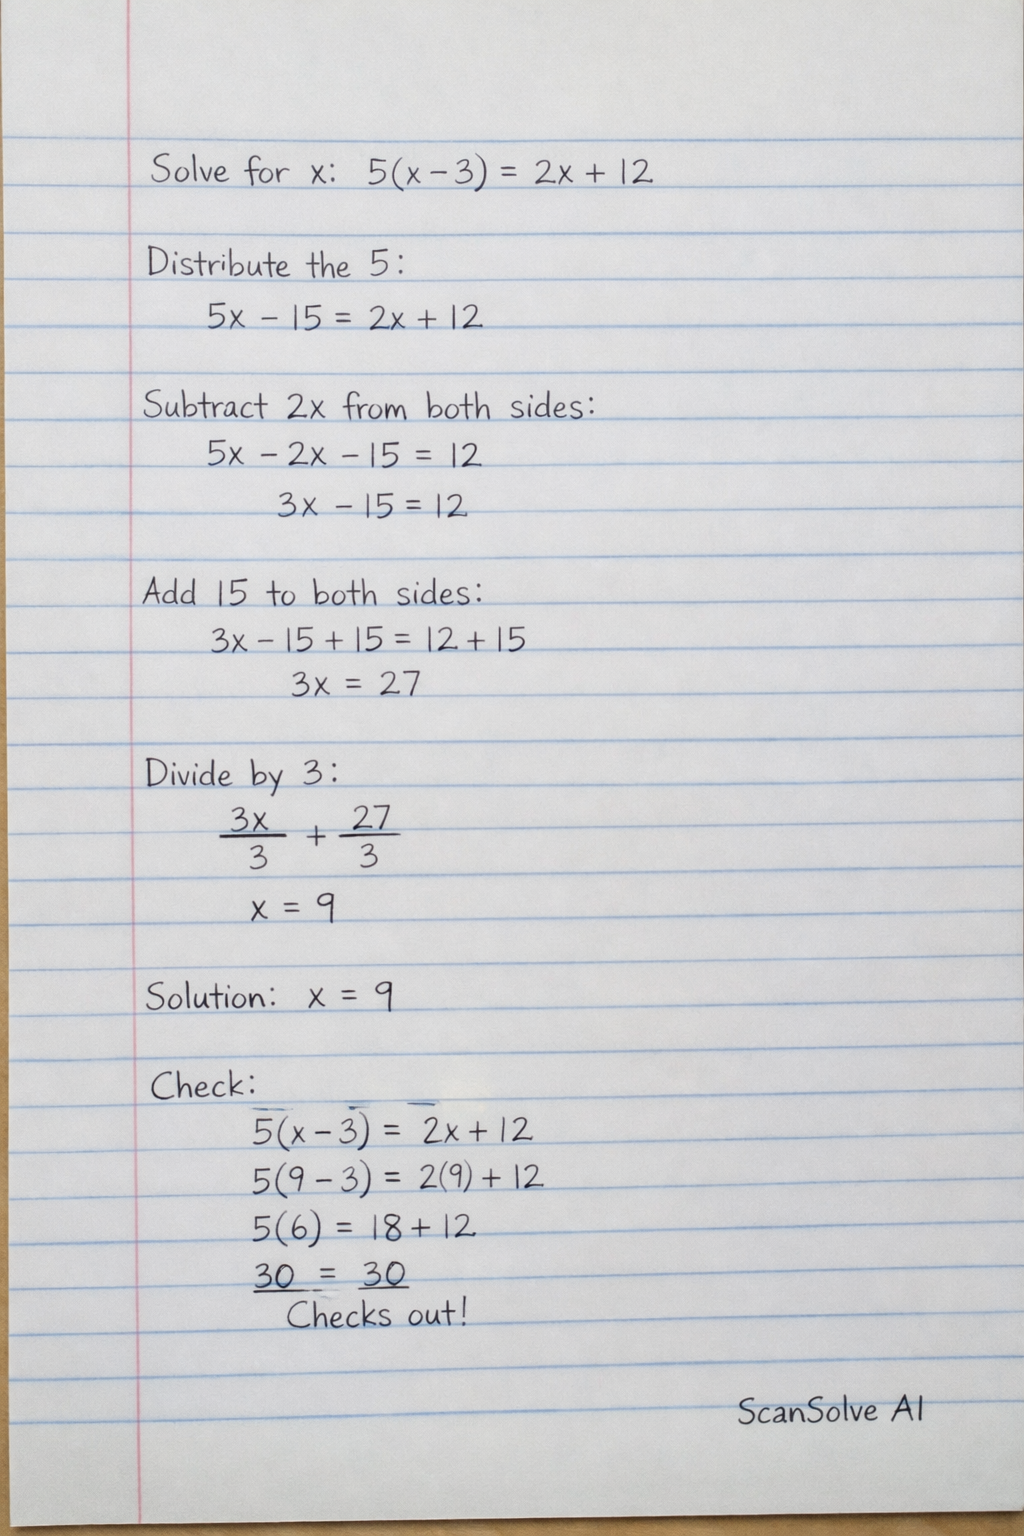 Solve for x: 5(x - 3) = 2x + 12
Distribute the 5:
5x - 15 = 2x + 12
Subtract 2x from both sides:
5x - 2x - 15 = 12
3x - 15 = 12
Add 15 to both sides:
3x - 15 + 15 = 12 + 15
3x = 27
Divide by 3:
3x/3 + 27/3
x = 9
Solution: x = 9
Check:
5(x - 3) = 2x + 12
5(9 - 3) = 2(9) + 12
5(6) = 18 + 12
30 = 30
Checks out!
ScanSolve AI